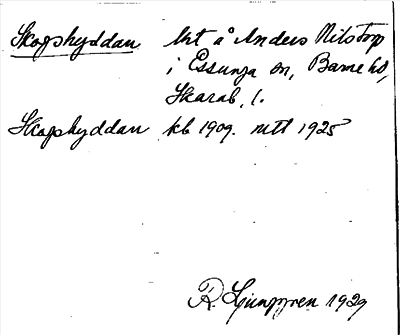 Skogshyddan lht å Anders Nilstorp
i Essunga sn, Barne hd,
Skarab. l.
Skogshyddan kb 1909. mtl 1925
R. Ljunggren 1929